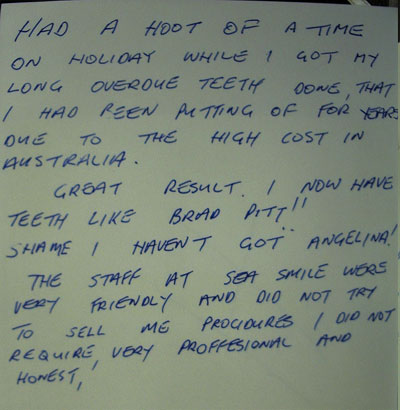 HAD A HOOT OF A TIME
ON HOLIDAY WHILE I GOT MY
LONG OVERDUE TEETH DONE, THAT
I HAD BEEN PUTTING OF FOR YEARS
DUE TO THE HIGH COST IN
AUSTRALIA.
GREAT RESULT. I NOW HAVE
TEETH LIKE BRAD PITT!!
SHAME I HAVEN'T GOT ANGELINA!
THE STAFF AT SEA SMILE WERE
VERY FRIENDLY AND DID NOT TRY
TO SELL ME PROCIDURES I DID NOT
REQUIRE, VERY PROFFESIONAL AND
HONEST,